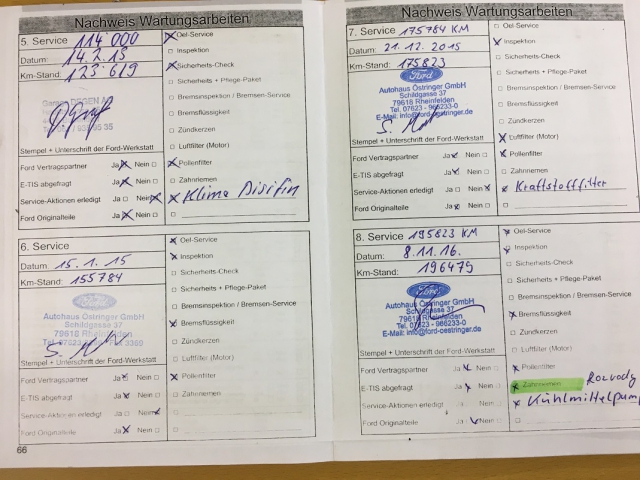 Nachweis Wartungsarbeiten
5. Service 114 000
Datum: 14.2.13
Km-Stand: 123 619
Stempel + Unterschrift der Ford-Werkstatt
Ford Vertragspartner Ja Nein
E-TIS abgefragt Ja Nein
Service-Aktionen erledigt Ja Nein
Ford Originalteile Ja Nein
Oel-Service
Inspektion
Sicherheits-Check
Sicherheits + Pflege-Paket
Bremsinspektion / Bremsen-Service
Bremsflüssigkeit
Zündkerzen
Luftfilter (Motor)
Pollenfilter
Zahnriemen
Klima Disifin
6. Service
Datum: 15.1.15
Km-Stand: 155784
Ford
Autohaus Östringer GmbH
Schildgasse 37
79618 Rheinfelden
Stempel + Unterschrift der Ford-Werkstatt
Ford Vertragspartner Ja Nein
E-TIS abgefragt Ja Nein
Service-Aktionen erledigt Ja Nein
Ford Originalteile Ja Nein
Oel-Service
Inspektion
Sicherheits-Check
Sicherheits + Pflege-Paket
Bremsinspektion / Bremsen-Service
Bremsflüssigkeit
Zündkerzen
Luftfilter (Motor)
Pollenfilter
Zahnriemen
66
Nachweis Wartungsarbeiten
7. Service 175784 KM
Datum: 21.12.2015
Km-Stand: 175823
Ford
Autohaus Östringer GmbH
Schildgasse 37
79618 Rheinfelden
Tel. 07623 - 966233-0
E-Mail: info@ford-oestringer.de
Stempel + Unterschrift der Ford-Werkstatt
Ford Vertragspartner Ja Nein
E-TIS abgefragt Ja Nein
Service-Aktionen erledigt Ja Nein
Ford Originalteile Ja Nein
Oel-Service
Inspektion
Sicherheits-Check
Sicherheits + Pflege-Paket
Bremsinspektion / Bremsen-Service
Bremsflüssigkeit
Zündkerzen
Luftfilter (Motor)
Pollenfilter
Zahnriemen
Kraftstofffilter
8. Service 195823 KM
Datum: 8.11.16.
Km-Stand: 196475
Ford
Autohaus Östringer GmbH
Schildgasse 37
79618 Rheinfelden
Tel. 07623 - 966233-0
E-Mail: info@ford-oestringer.de
Stempel + Unterschrift der Ford-Werkstatt
Ford Vertragspartner Ja Nein
E-TIS abgefragt Ja Nein
Service-Aktionen erledigt Ja Nein
Ford Originalteile Ja Nein
Oel-Service
Inspektion
Sicherheits-Check
Sicherheits + Pflege-Paket
Bremsinspektion / Bremsen-Service
Bremsflüssigkeit
Zündkerzen
Luftfilter (Motor)
Pollenfilter
Zahnriemen Rozvody
Kühlmittelpum